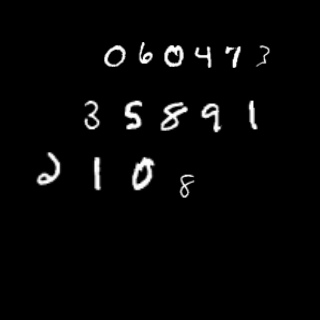 060473
35891
2108